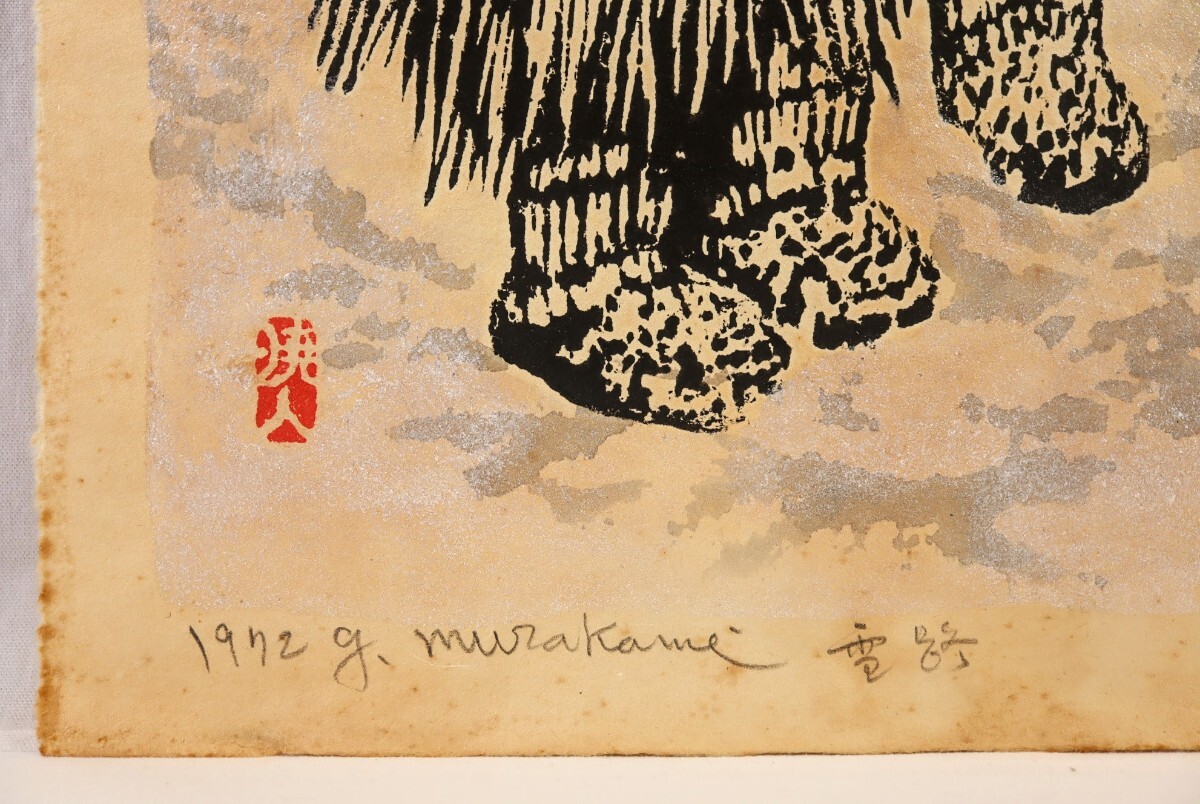 暁人
1972 g. murakami 雪路